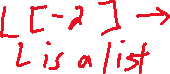 L [-2] →
L is a list